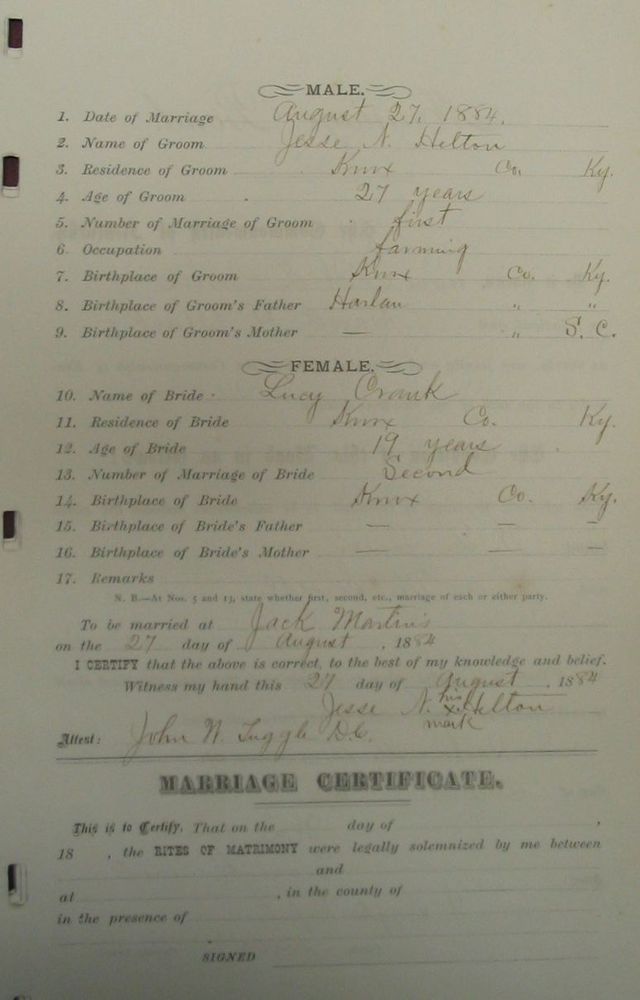 MALE.
1. Date of Marriage August 27, 1884.
2. Name of Groom Jesse N. Helton
3. Residence of Groom Knox Co. Ky.
4. Age of Groom 27 years
5. Number of Marriage of Groom first
6. Occupation farming
7. Birthplace of Groom Knox Co. Ky.
8. Birthplace of Groom's Father Harlan " "
9. Birthplace of Groom's Mother — " S. C.
FEMALE.
10. Name of Bride Lucy Crank
11. Residence of Bride Knox Co. Ky.
12. Age of Bride 19 years
13. Number of Marriage of Bride Second
14. Birthplace of Bride Knox Co. Ky.
15. Birthplace of Bride's Father — — —
16. Birthplace of Bride's Mother — —
17. Remarks
N. B.—At Nos. 5 and 13, state whether first, second, etc., marriage of each or either party.
To be married at Jack Martin's
on the 27 day of August, 1884
I CERTIFY that the above is correct, to the best of my knowledge and belief.
Witness my hand this 27 day of August, 1884
Jesse N. his x mark Helton
Attest: John W. Tuggle D.C.
MARRIAGE CERTIFICATE.
This is to Certify, That on the day of ,
18 , the RITES OF MATRIMONY were legally solemnized by me between
and
at , in the county of
in the presence of
SIGNED